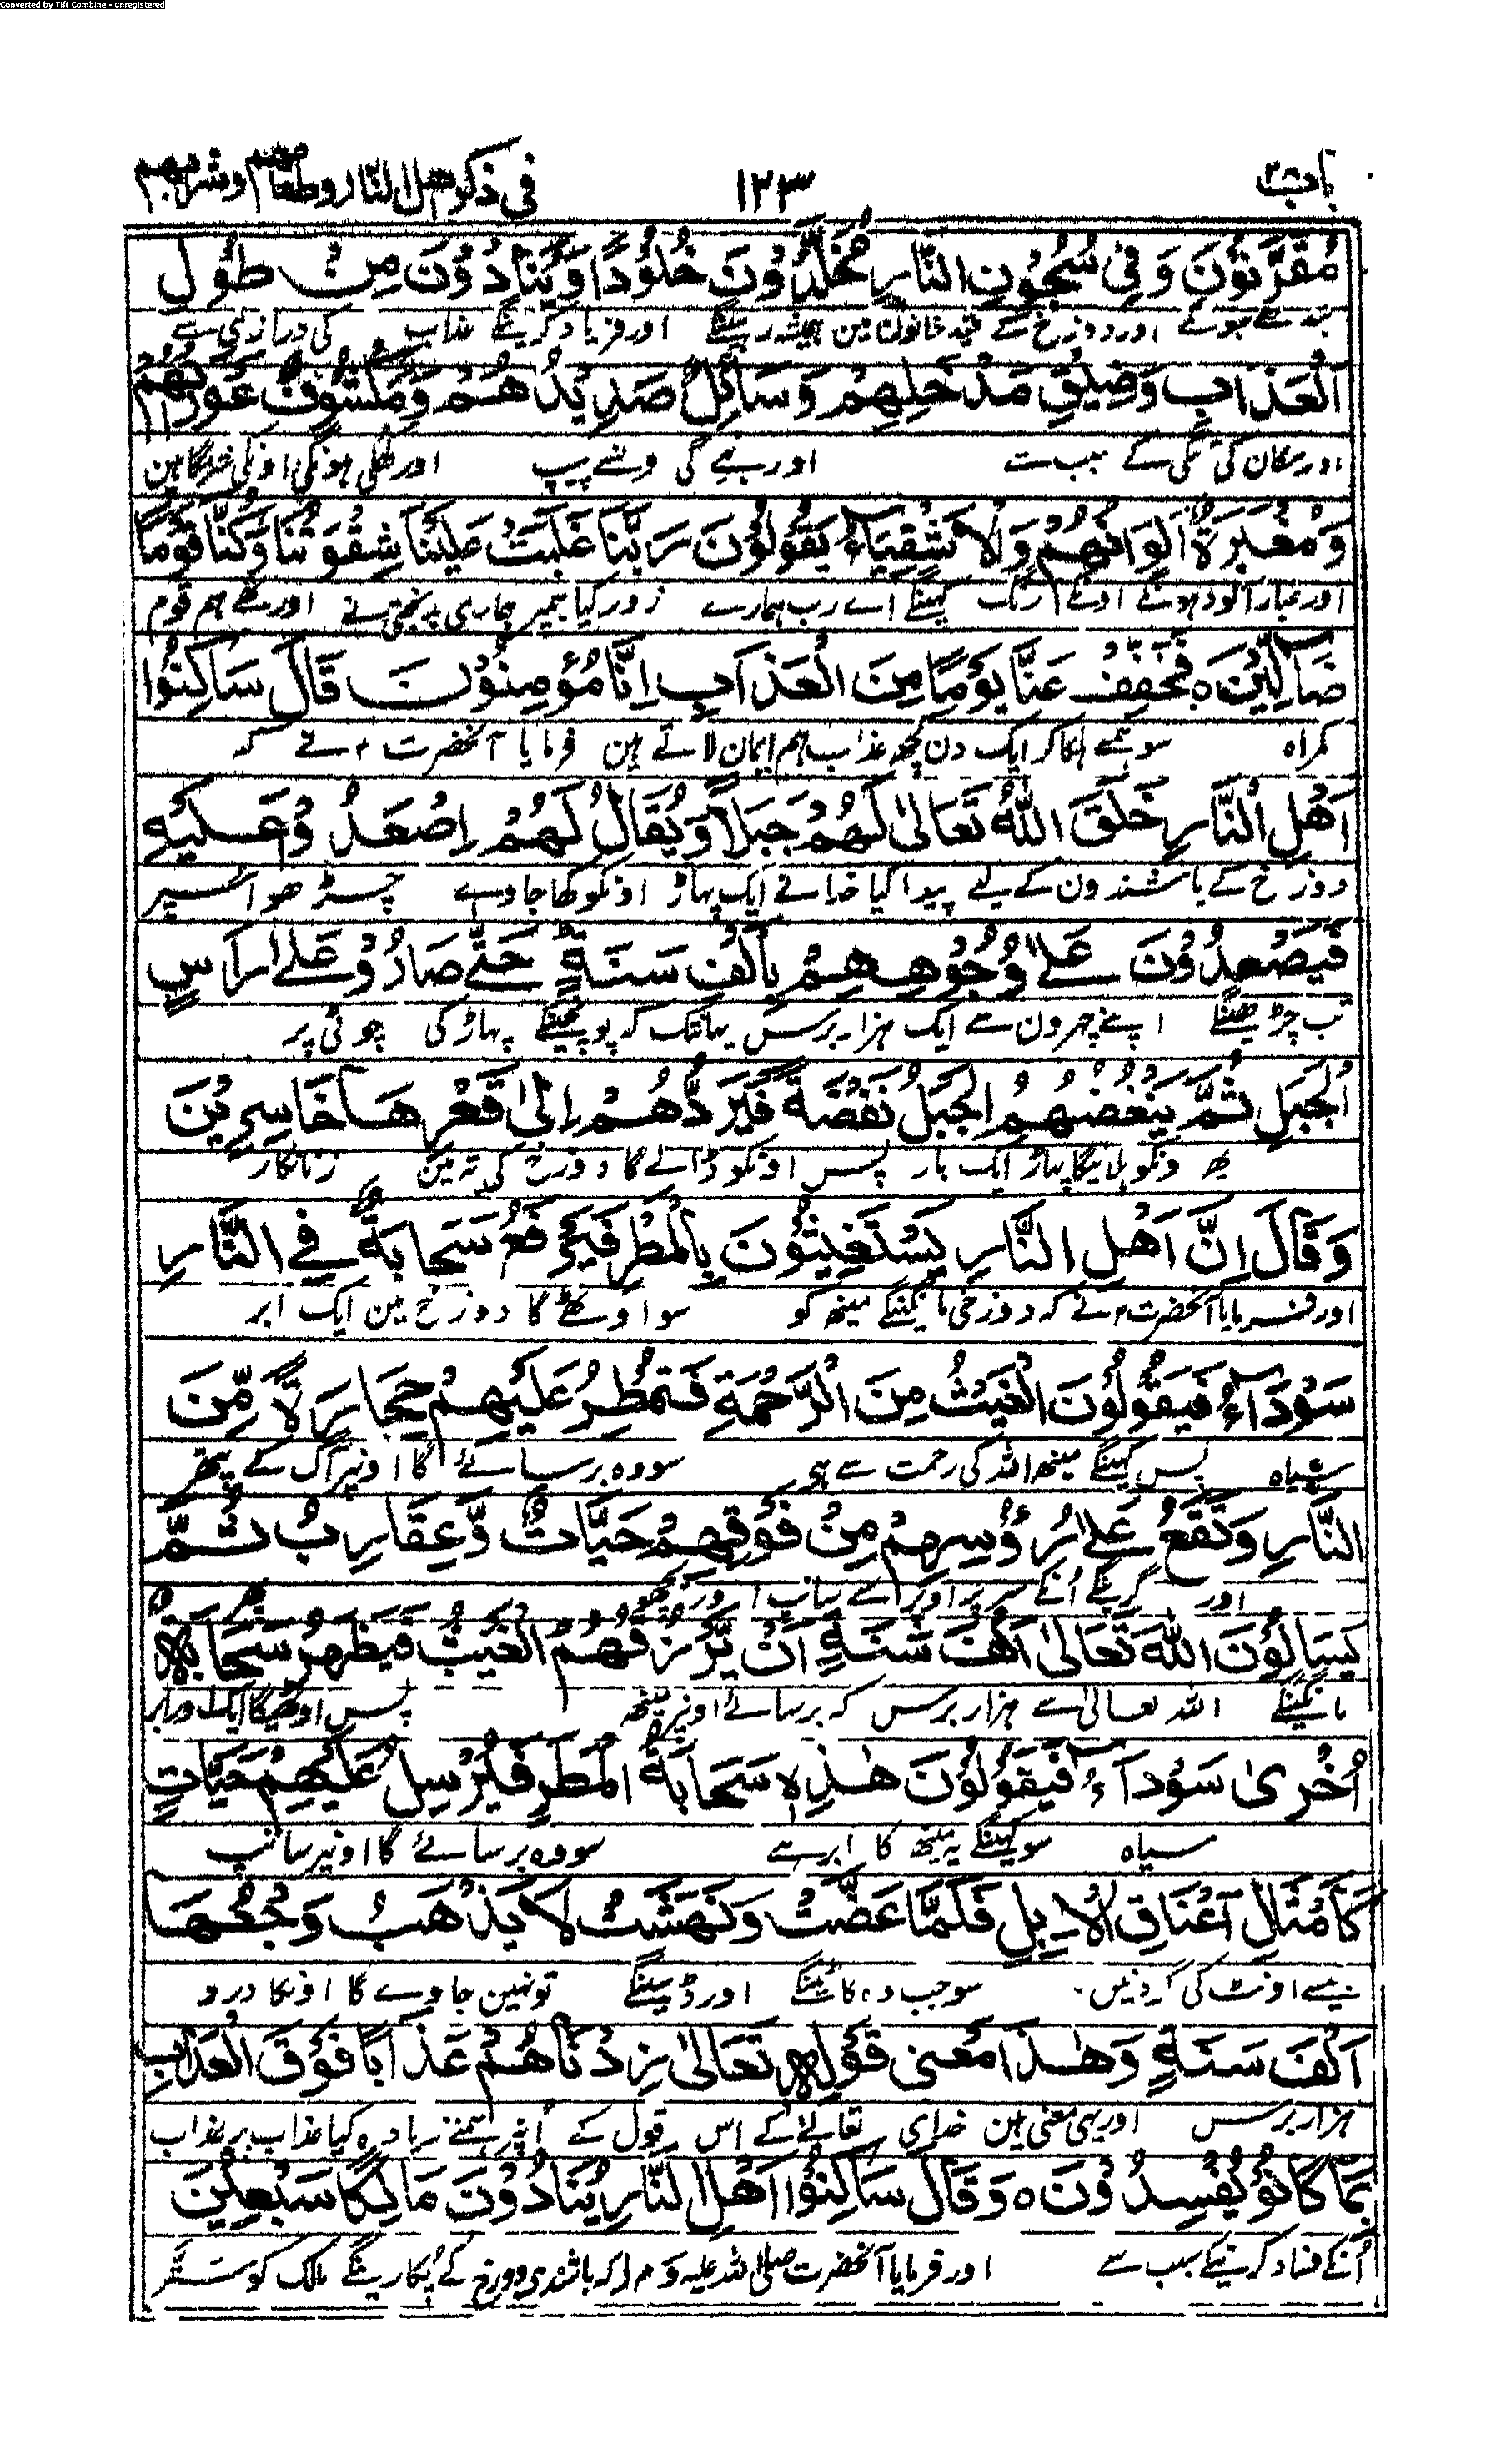 Converted by Tiff Combine - unregistered
باب ٣٨ ١٢٣ في ذكر اهل النار وطعامهم وشرابهم
مُقَرَّنُوْنَ وَفِیْ سُجُوْنِ النَّارِ مُخَلَّدُوْنَ خُلُوْدًا وَّیُنَادُوْنَ مِنْ طُوْلِ
اور دوزخ کے قید خانون مین ہمیشہ رہینگے اور فریاد کرینگے عذاب کی درازگی سے
الْعَذَابِ وَضِیْقِ مَدْخَلِهِمْ وَسَائِلٌ صَدِیْدُهُمْ وَمَكْشُوْفٌ عَوْرَتُهُمْ
اور مکان کی تنگی کے سبب سے اور بہے گی پیپ اور کھلی ہونگی اونکی شرمگاہین
وَمُغْبَرَةٌ اَلْوَانُهُمْ وَالْاَشْقِیَآءُ یَقُوْلُوْنَ رَبَّنَا غَلَبَتْ عَلَیْنَا شِقْوَتُنَا وَكُنَّا قَوْمًا
اور غبار آلود ہونگے اونکے رنگ کہینگے اے رب ہمارے زور کیا ہمپر ہماری بدبختی نے اور تھے ہم قوم
ضَالِّیْنَ ہ فَخَفِّفْ عَنَّا یَوْمًا مِنَ الْعَذَابِ اِنَّا مُؤْمِنُوْنَ قَالَ سَاكِنُوْا
گمراہ سو ہمسے ہلکا کر ایک دن کچھ عذاب ہم ایمان لائے ہین فرمایا آنحضرت م نے کہ
اَهْلِ النَّارِ خَلَقَ اللّٰهُ تَعَالٰی لَهُمْ جَبَلًا وَیُقَالُ لَهُمْ اِصْعَدُوْا عَلَیْهِ
دوزخ کے باشندون کے لیے پیدا کیا خدا نے ایک پہاڑ اونکو کہا جاوے چڑھو اسپر
فَیَصْعِدُوْنَ عَلٰی وُجُوْهِهِمْ بِاَلْفِ سَنَةٍ حَتّٰی صَارُوْا عَلٰی رَاْسِ
تب چڑھینگے اپنے چہرون سے ایک ہزار برس یہانتک کہ پہونچینگے پہاڑ کی چوٹی پر
الْجَبَلِ ثُمَّ یَنْفُضُهُمُ الْجَبَلُ نَفْضَةً فَیَرُدُّهُمْ اِلٰی قَعْرِهَا خَاسِرِیْنَ
پھر ونکو ہلائیگا پہاڑ ایک بار پس اونکو ڈالے گا دوزخ کی تہ مین زیانکار
وَقَالَ اِنَّ اَهْلَ النَّارِ یَسْتَغِیْثُوْنَ بِالْمَطَرِ فَیَرْفَعُ سَحَابَةٌ فِی النَّارِ
اور فرمایا آنحضرت م نے کہ دوزخی مانگینگے مینھ کو سو اوٹھے گا دوزخ مین ایک ابر
سَوْدَآءُ فَیَقُوْلُوْنَ الْغَیْثُ مِنَ الرَّحْمَةِ فَتُمْطِرُ عَلَیْهِمْ حِجَارَةً مِّنَ
سیاہ پس کہینگے مینھ اللہ کی رحمت سے ہی سو وہ برسائے گا اونپر آگ کے پتھر
النَّارِ وَتَقَعُ عَلٰی رُؤُسِهِمْ مِنْ فَوْقِهِمْ حَیَّاتٌ وَّعِقَارِبُ ثُمَّ
اور گرینگے اُنکے سر پر اوپر سے سانپ اور بچھو
یَسَاَلُوْنَ اللّٰهَ تَعَالٰی اَلْفَ سَنَةٍ اَنْ یَّرْزُقَهُمُ الْغَیْثَ فَیَظْهَرُ سَحَابَةٌ
مانگینگے اللہ تعالیٰ سے ہزار برس کہ برسائے اونپر مینھ پس اوٹھیگا ایک اور ابر
اُخْرٰی سَوْدَآءُ فَیَقُوْلُوْنَ هٰذِهٖ سَحَابَةُ الْمَطَرِ فَیُرْسِلُ عَلَیْهِمْ حَیَّاتٍ
سیاہ سو کہینگے یہ مینھ کا ابر ہے سو وہ برسائے گا اونپر سانپ
كَاَمْثَالِ اَعْنَاقِ الْاِبِلِ فَلَمَّا عَضَّتْ وَنَهَشَتْ لَا یَذْهَبُ وَجْعُهَا
جیسے اونٹ کی گردنین سو جب وہ کاٹینگے اور ڈسینگے تو نہین جاوے گا اونکا درد
اَلْفَ سَنَةٍ وَهٰذَا مَعْنٰی قَوْلِهٖ تَعَالٰی زِدْنَاهُمْ عَذَابًا فَوْقَ الْعَذَابِ
ہزار برس اور یہی معنی ہین خدای تعالےٰ کے اس قول کے اُنپر ہمنے زیادہ کیا عذاب پر عذاب
بِمَا كَانُوْا یُفْسِدُوْنَ ہ وَقَالَ سَاكِنُوْا اَهْلِ النَّارِ یُنَادُوْنَ مَالِكًا سَبْعِیْنَ
اُنکے فساد کرنیکے سبب سے اور فرمایا آنحضرت صلی اللہ علیہ و م کہ باشندی دوزخ کے پُکارینگے مالک کو ستر